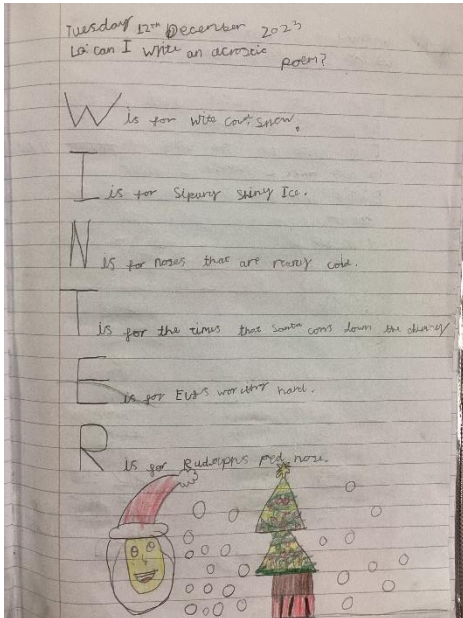 Tuesday 12th December 2023
Lo: can I write an acrostic
poem?
W is for wite snow.
I is for Slipary Shiny Ice.
N is for noses that are rearly cold.
T is for the times that Santa coms down the
E is for Evls worcing hard.
R is for Rudolphs red nose.